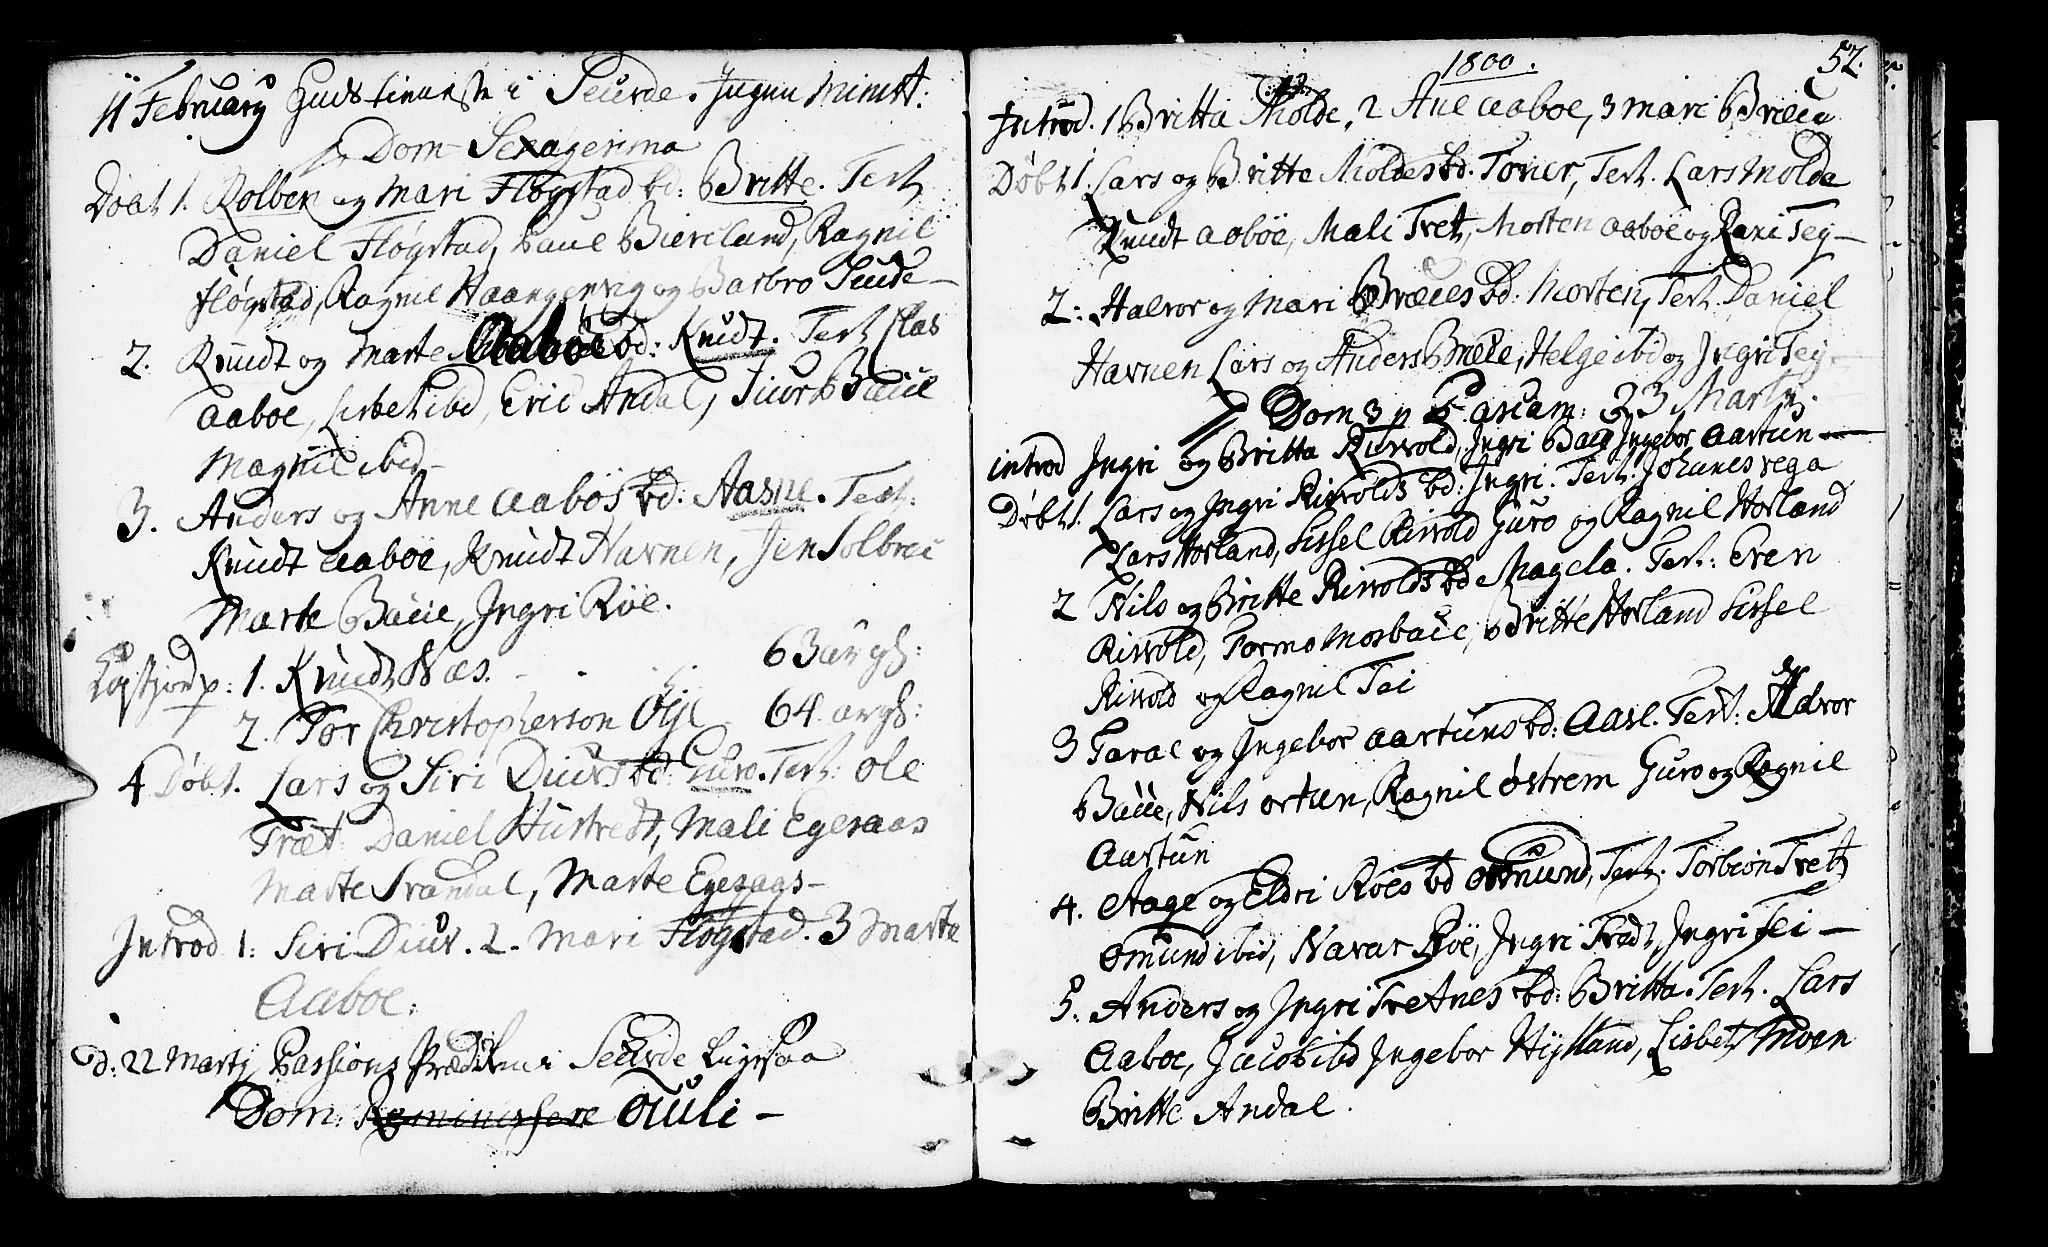 11 February Gudstieneste i Seurde. Ingen Minist:
Dom Sexagesima
Dôbt 1. Kolben og Mari Flógstad bd: Britte. Test.
Daniel Flógstad, Paul Biereland, Ragnil
Flógstad, Ragnil Haangenvig og Barbro Suде
2. Knudt og Marte Aaböe bd: Knudt. Test. Clas
Aaboe, Lisbet ibd, Eric Andal, Siur Baüe
Magnil ibid
3. Anders og Anne Aabös bd: Aasne. Test:
Knudt Aaböe, Knudt Havnen, Jen Solbrec
Marte Baüe, Ingri Röe.
1. Knudt Næs. 63 aar gl:
2. Tor Christopherson Óÿe 64 ar gl:
4 Döbt. Lars og Siri Diurs bd: Guro. Test: Ole
Træt Daniel Hustredt, Mali Egesaas
Marte Svandal, Marte Egesaas
Introd 1: Siri Diur. 2. Mari Flógstad. 3 Marte
Aaboe:
d: 22 Martj Passions Prædiken i Seurde Ligesaa
Dom: Reminiscere Oculi
1800. 52.
Introd. 1 Britta Molde, 2 Ane Aaboe, 3 Mari Bræüe
Döbt 1. Lars og Britte Moldes bd. Toner, Test. Lars Molde
Knudt Aaböe, Mali Tret, Morten Aaböe og Rani Tej
2: Halvor og Mari Bræües bd: Morten, Test. Daniel
Havnen Lars og Anders Bræüe, Helge ibid og Ingri Tej
Dom 3 p Pascam: 23 Martj.
introd Ingri og Britta Rivold, Ingri Baüe Ingebor Aartun
Döbt 1. Lars og Ingri Rivolds bd: Ingri. Test. Johanes vega
Lars Horland, Sissel Rivold Guro og Ragnil Horland
2 Nils og Britte Rivolds bd Magela. Test: Even
Rivold, Tormo Mosbaüe, Britte Horland Sissel
Rivold og Ragnil Tei
3 Taral og Ingebor Aartuns bd: Aasl. Test: Haldvor
Baüe, Nils Ortun, Ragnil Óstrem Guro og Ragnil
Aartun
4. Aage og Eldri Röes bd Omund, Test. Torbion Tret
Omund ibid, Navar Röe, Ingri Trædt, Ingri Tei
5. Anders og Ingri Tretnes bd: Britta. Test. Lars
Aaboe, Jacob ibd Ingebor Hÿlland, Lisbet Moen
Britte Andal.